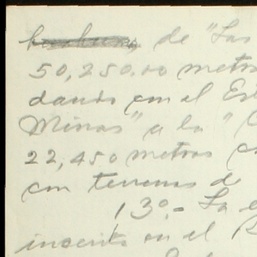 de "Las
50,250.00 metros
dando con el Es
Minas" a la "C
22,450 metros c
con terrenos de
13º.- La e
inscrita en el R